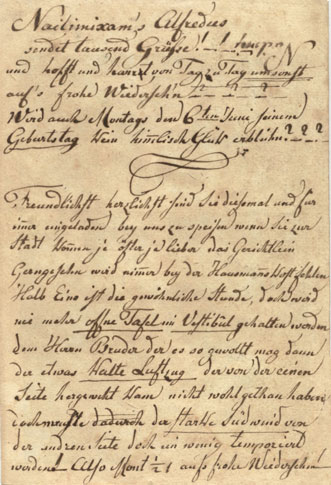 Nailimixam's Alfredus
sendet tausend Grüsse! ! !
und hofft und harret von Tag zu Tag umsonst
auf's frohe Wiedersehn! ? ? ?
Wird auch Montags den 6ten Juni seinem
Geburtstag kein himlisch Glük erblühn? ? ?
Freundlichst herzlichst sind Sie diesmal und für
immer eingeladen bey uns zu speisen wenn Sie zur
Stadt komen je öfter je lieber das Gerichtlein
Gerngesehn wird nimer bey der Hausmans Kost fehlen
Halb Eins ist die gewöhnliche Stunde, doch wird
nie mehr offne Tafel im Vestibül gehalten werden
dem Herrn Bruder der es so gewollt mag dann
der etwas kalte Luftzug der von der einen
Seite hergeweht kam nicht wohl gethan haben
doch musste dadurch der starke Südwind von
der andren Seite doch ein wenig temperiert
werden! Also Mont auf's frohe Wiedersehn!